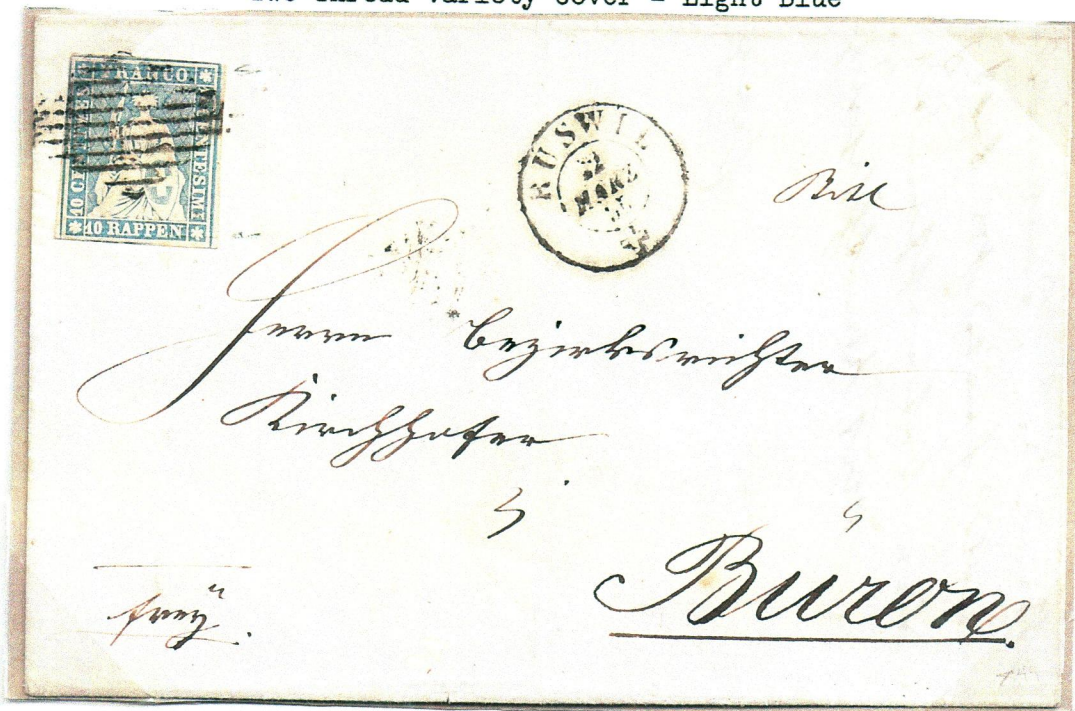 Two Thread Variety Cover - Light Blue
FRANCO
10 CENTIMES
10 CENTESIMI
10 RAPPEN
RUSWIL
MARZ
Herrn Bezirksrichter
Kirchhofer
Büron.
frey.